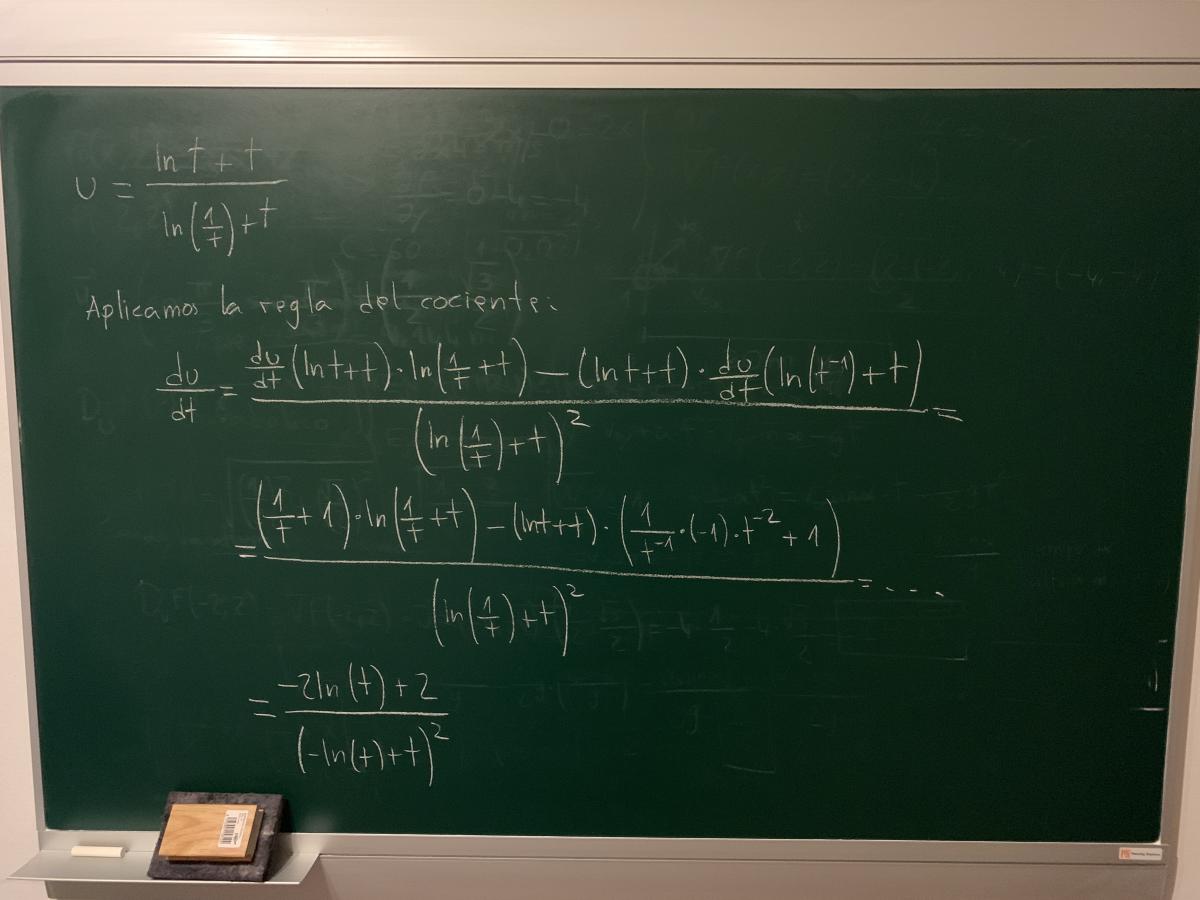 u = (ln t + t)/(ln(1/t) + t)
Aplicamos la regla del cociente:
du/dt = (du/dt (ln t + t) · ln(1/t + t) − (ln t + t) · du/dt (ln(t⁻¹) + t))/(ln(1/t) + t)² =
= ((1/t + 1) · ln(1/t + t) − (ln t + t) · (1/t⁻¹ · (-1) · t⁻² + 1))/(ln(1/t) + t)² = ....
= (-2ln(t) + 2)/(-ln(t) + t)²